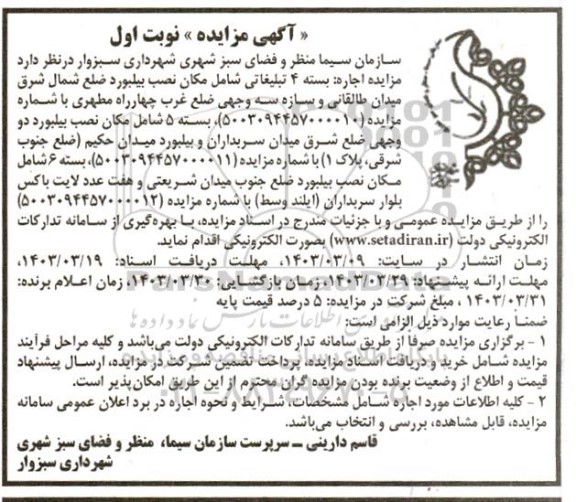 « آگهی مزایده » نوبت اول
سازمان سیما منظر و فضای سبز شهری شهرداری سبزوار درنظر دارد
مزایده اجاره: بسته ۴ تبلیغاتی شامل مکان نصب بیلبورد ضلع شمال شرق
میدان طالقانی و سازه سه وجهی ضلع غرب چهارراه مطهری با شماره
مزایده (۵۰۰۳۰۹۴۴۵۷۰۰۰۰۱۰)، بسته ۵ شامل مکان نصب بیلبورد دو
وجهی ضلع شرق میدان سربداران و بیلبورد میدان حکیم (ضلع جنوب
شرقی، پلاک ۱) با شماره مزایده (۵۰۰۳۰۹۴۴۵۷۰۰۰۰۱۱)، بسته ۶ شامل
مکان نصب بیلبورد ضلع جنوب میدان شریعتی و هفت عدد لایت باکس
بلوار سربداران (آیلند وسط) با شماره مزایده (۵۰۰۳۰۹۴۴۵۷۰۰۰۰۱۲)
را از طریق مزایده عمومی و با جزئیات مندرج در اسناد مزایده، با بهره‌گیری از سامانه تدارکات
الکترونیکی دولت (www.setadiran.ir) بصورت الکترونیکی اقدام نماید.
زمان انتشار در سایت: ۱۴۰۳/۰۳/۰۹، مهلت دریافت اسناد: ۱۴۰۳/۰۳/۱۹،
مهلت ارائه پیشنهاد: ۱۴۰۳/۰۳/۲۹، زمان بازگشایی: ۱۴۰۳/۰۳/۳۰، زمان اعلام برنده:
۱۴۰۳/۰۳/۳۱ ، مبلغ شرکت در مزایده: ۵ درصد قیمت پایه
ضمنا رعایت موارد ذیل الزامی است:
۱ - برگزاری مزایده صرفا از طریق سامانه تدارکات الکترونیکی دولت می‌باشد و کلیه مراحل فرآیند
مزایده شامل خرید و دریافت اسناد مزایده، پرداخت تضمین شرکت در مزایده، ارسال پیشنهاد
قیمت و اطلاع از وضعیت برنده بودن مزایده گران محترم از این طریق امکان‌پذیر است.
۲ - کلیه اطلاعات مورد اجاره شامل مشخصات، شرایط و نحوه اجاره در برد اعلان عمومی سامانه
مزایده، قابل مشاهده، بررسی و انتخاب می‌باشد.
قاسم دارینی ــ سرپرست سازمان سیما، منظر و فضای سبز شهری
شهرداری سبزوار